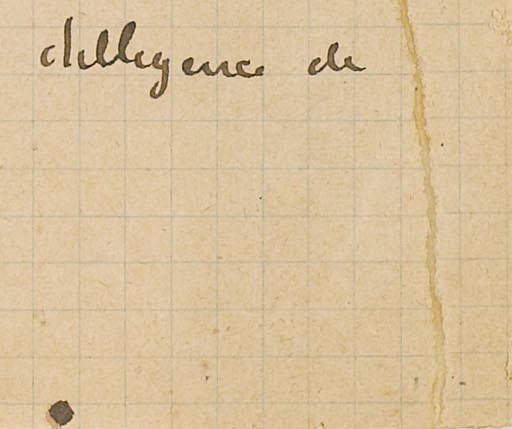 dilligence de